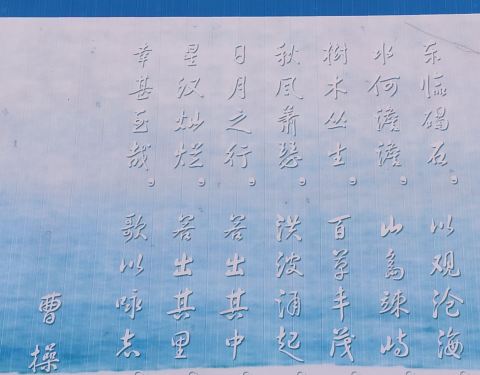 东临碣石。以观沧海
水何澹澹。山岛竦峙
樹木丛生。百草丰茂
秋风萧瑟。洪波涌起
日月之行。若出其中
星汉灿烂。若出其里
幸甚至哉。歌以咏志
曹操